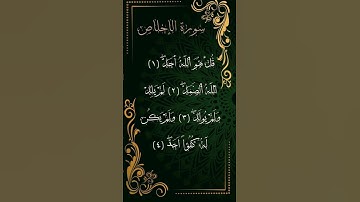 سورة الإخلاص
قُلْ هُوَ ٱللَّهُ أَحَدٌ (١)
ٱللَّهُ ٱلصَّمَدُ (٢) لَمْ يَلِدْ
وَلَمْ يُولَدْ (٣) وَلَمْ يَكُن
لَّهُۥ كُفُوًا أَحَدٌ (٤)